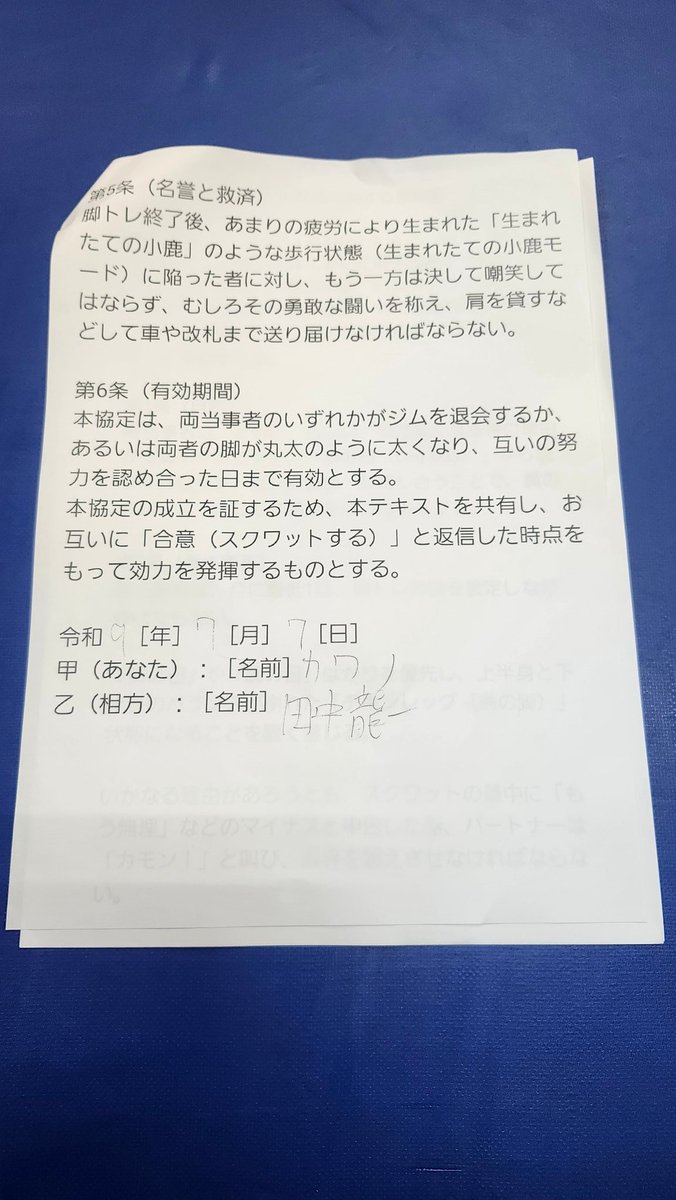 第5条（名誉と救済）
脚トレ終了後、あまりの疲労により生まれた「生まれ
たての小鹿」のような歩行状態（生まれたての小鹿モ
ード）に陥った者に対し、もう一方は決して嘲笑して
はならず、むしろその勇敢な闘いを称え、肩を貸すな
どして車や改札まで送り届けなければならない。
第6条（有効期間）
本協定は、両当事者のいずれかがジムを退会するか、
あるいは両者の脚が丸太のように太くなり、互いの努
力を認め合った日まで有効とする。
本協定の成立を証するため、本テキストを共有し、お
互いに「合意（スクワットする）」と返信した時点を
もって効力を発揮するものとする。
令和 9 [年] 7 [月] 7 [日]
甲（あなた）：[名前] カワノ
乙（相方）：[名前] 田中龍一
いかなる理由があろうとも、スクワットの最中に「も
う無理」などのマイナス
パートナーは
「カモン！」と叫び、
なければならな
い。